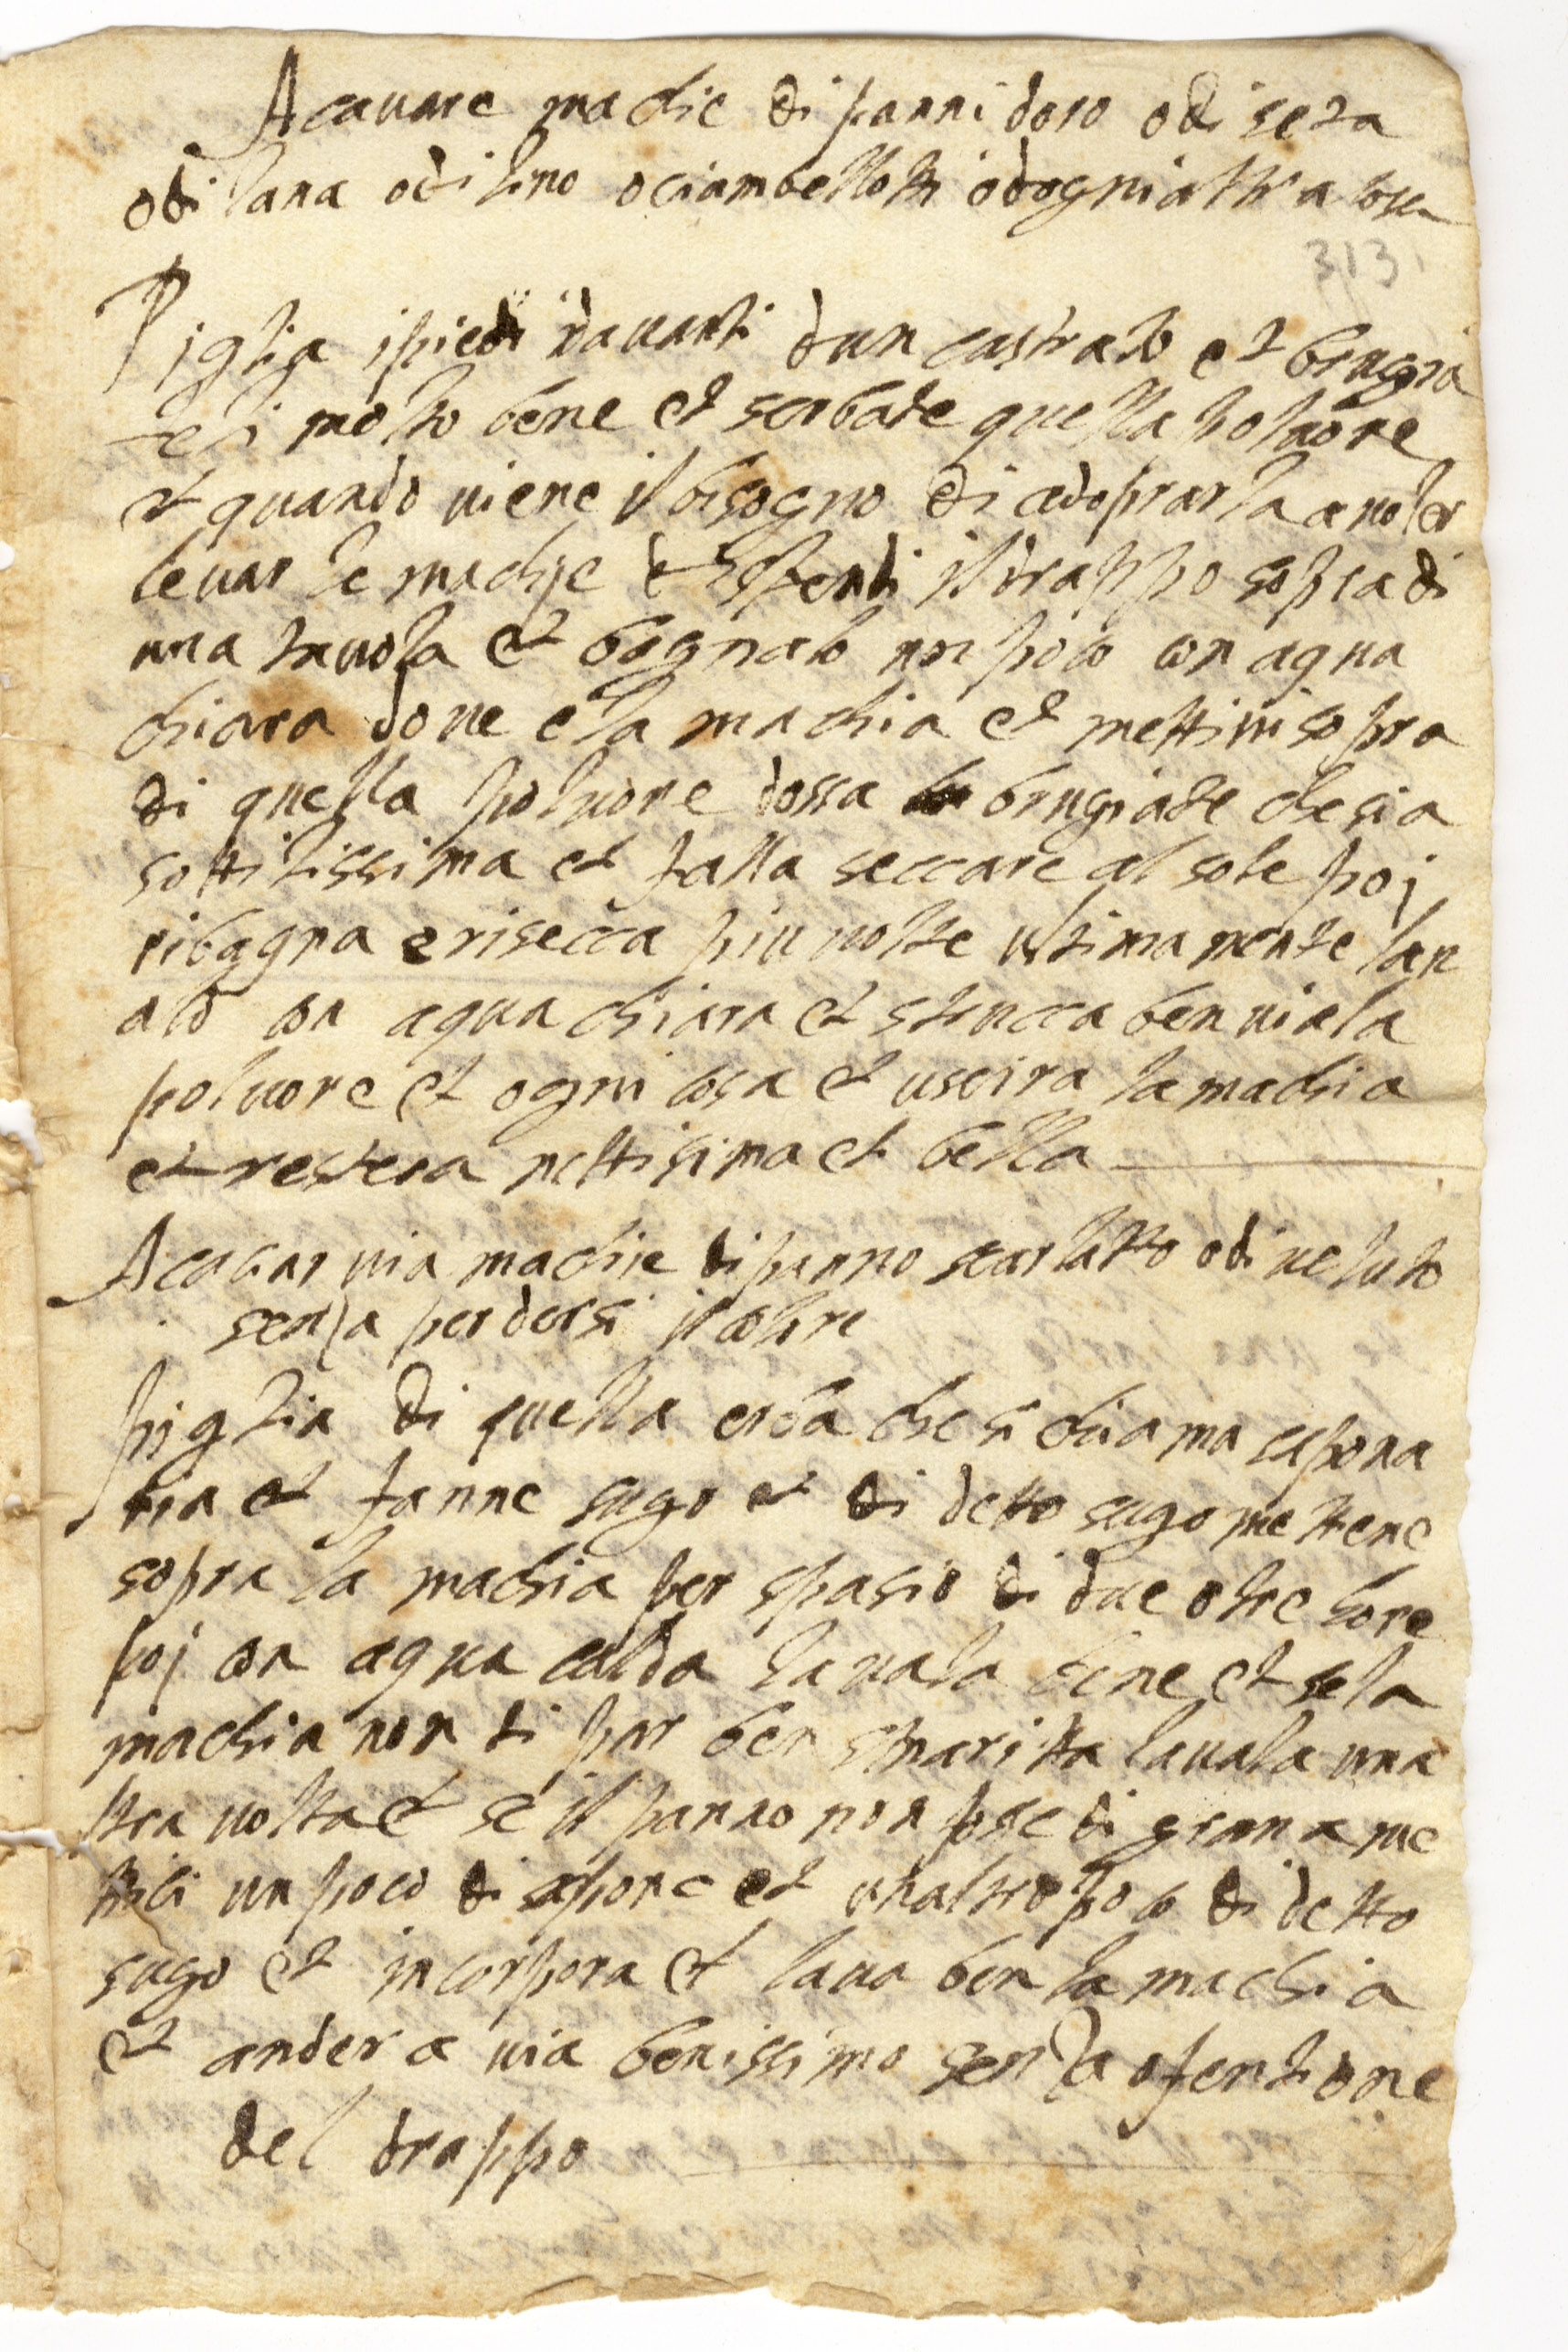 A cavare machie di panni doro o di seta
o di lana o di lino o ciambellotti o dogni altra cosa
313
Piglia i piedi davanti dun castrato et brugia
teli molto bene et serbate quella polvore
et quando viene il bisogno di adoprarla a voler
levar le machje et stendi il drappo sopra di
una tavola et bagnalo un poco con aqua
chiara dove e la machia et mettivi sopra
di quella polvore dossa brugiate che sia
sottilissima et falla seccare al sole poj
ribagna e risecca piu volte ultimamente lav
alo con aqua chiara et strucca ben via la
polvore et ogni cosa et uscira la machia
et restera nettisima et bella
A cavar via machie di panno scarlatto o di veluto
senza perdersi il colore
piglia di quella erba che si chiama sapona
ria et fanne sugo et di detto sugo mettene
sopra la machia per spasio di due o tre hore
poj con aqua calda lavala bene et se la
machia non ti par ben smaritta lavala una
ltra volta et se il panno non fose di grana me
ttici un poco di sapone et unaltro poco di detto
sugo et incorpora et lava ben la machia
et andera via benissimo senza ofentione
del drappo